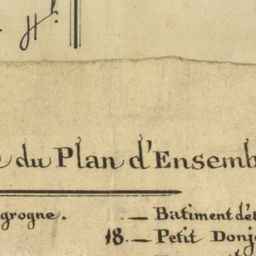 du Plan d'Ensemb
grogne. — Batiment dét
18. — Petit Donj